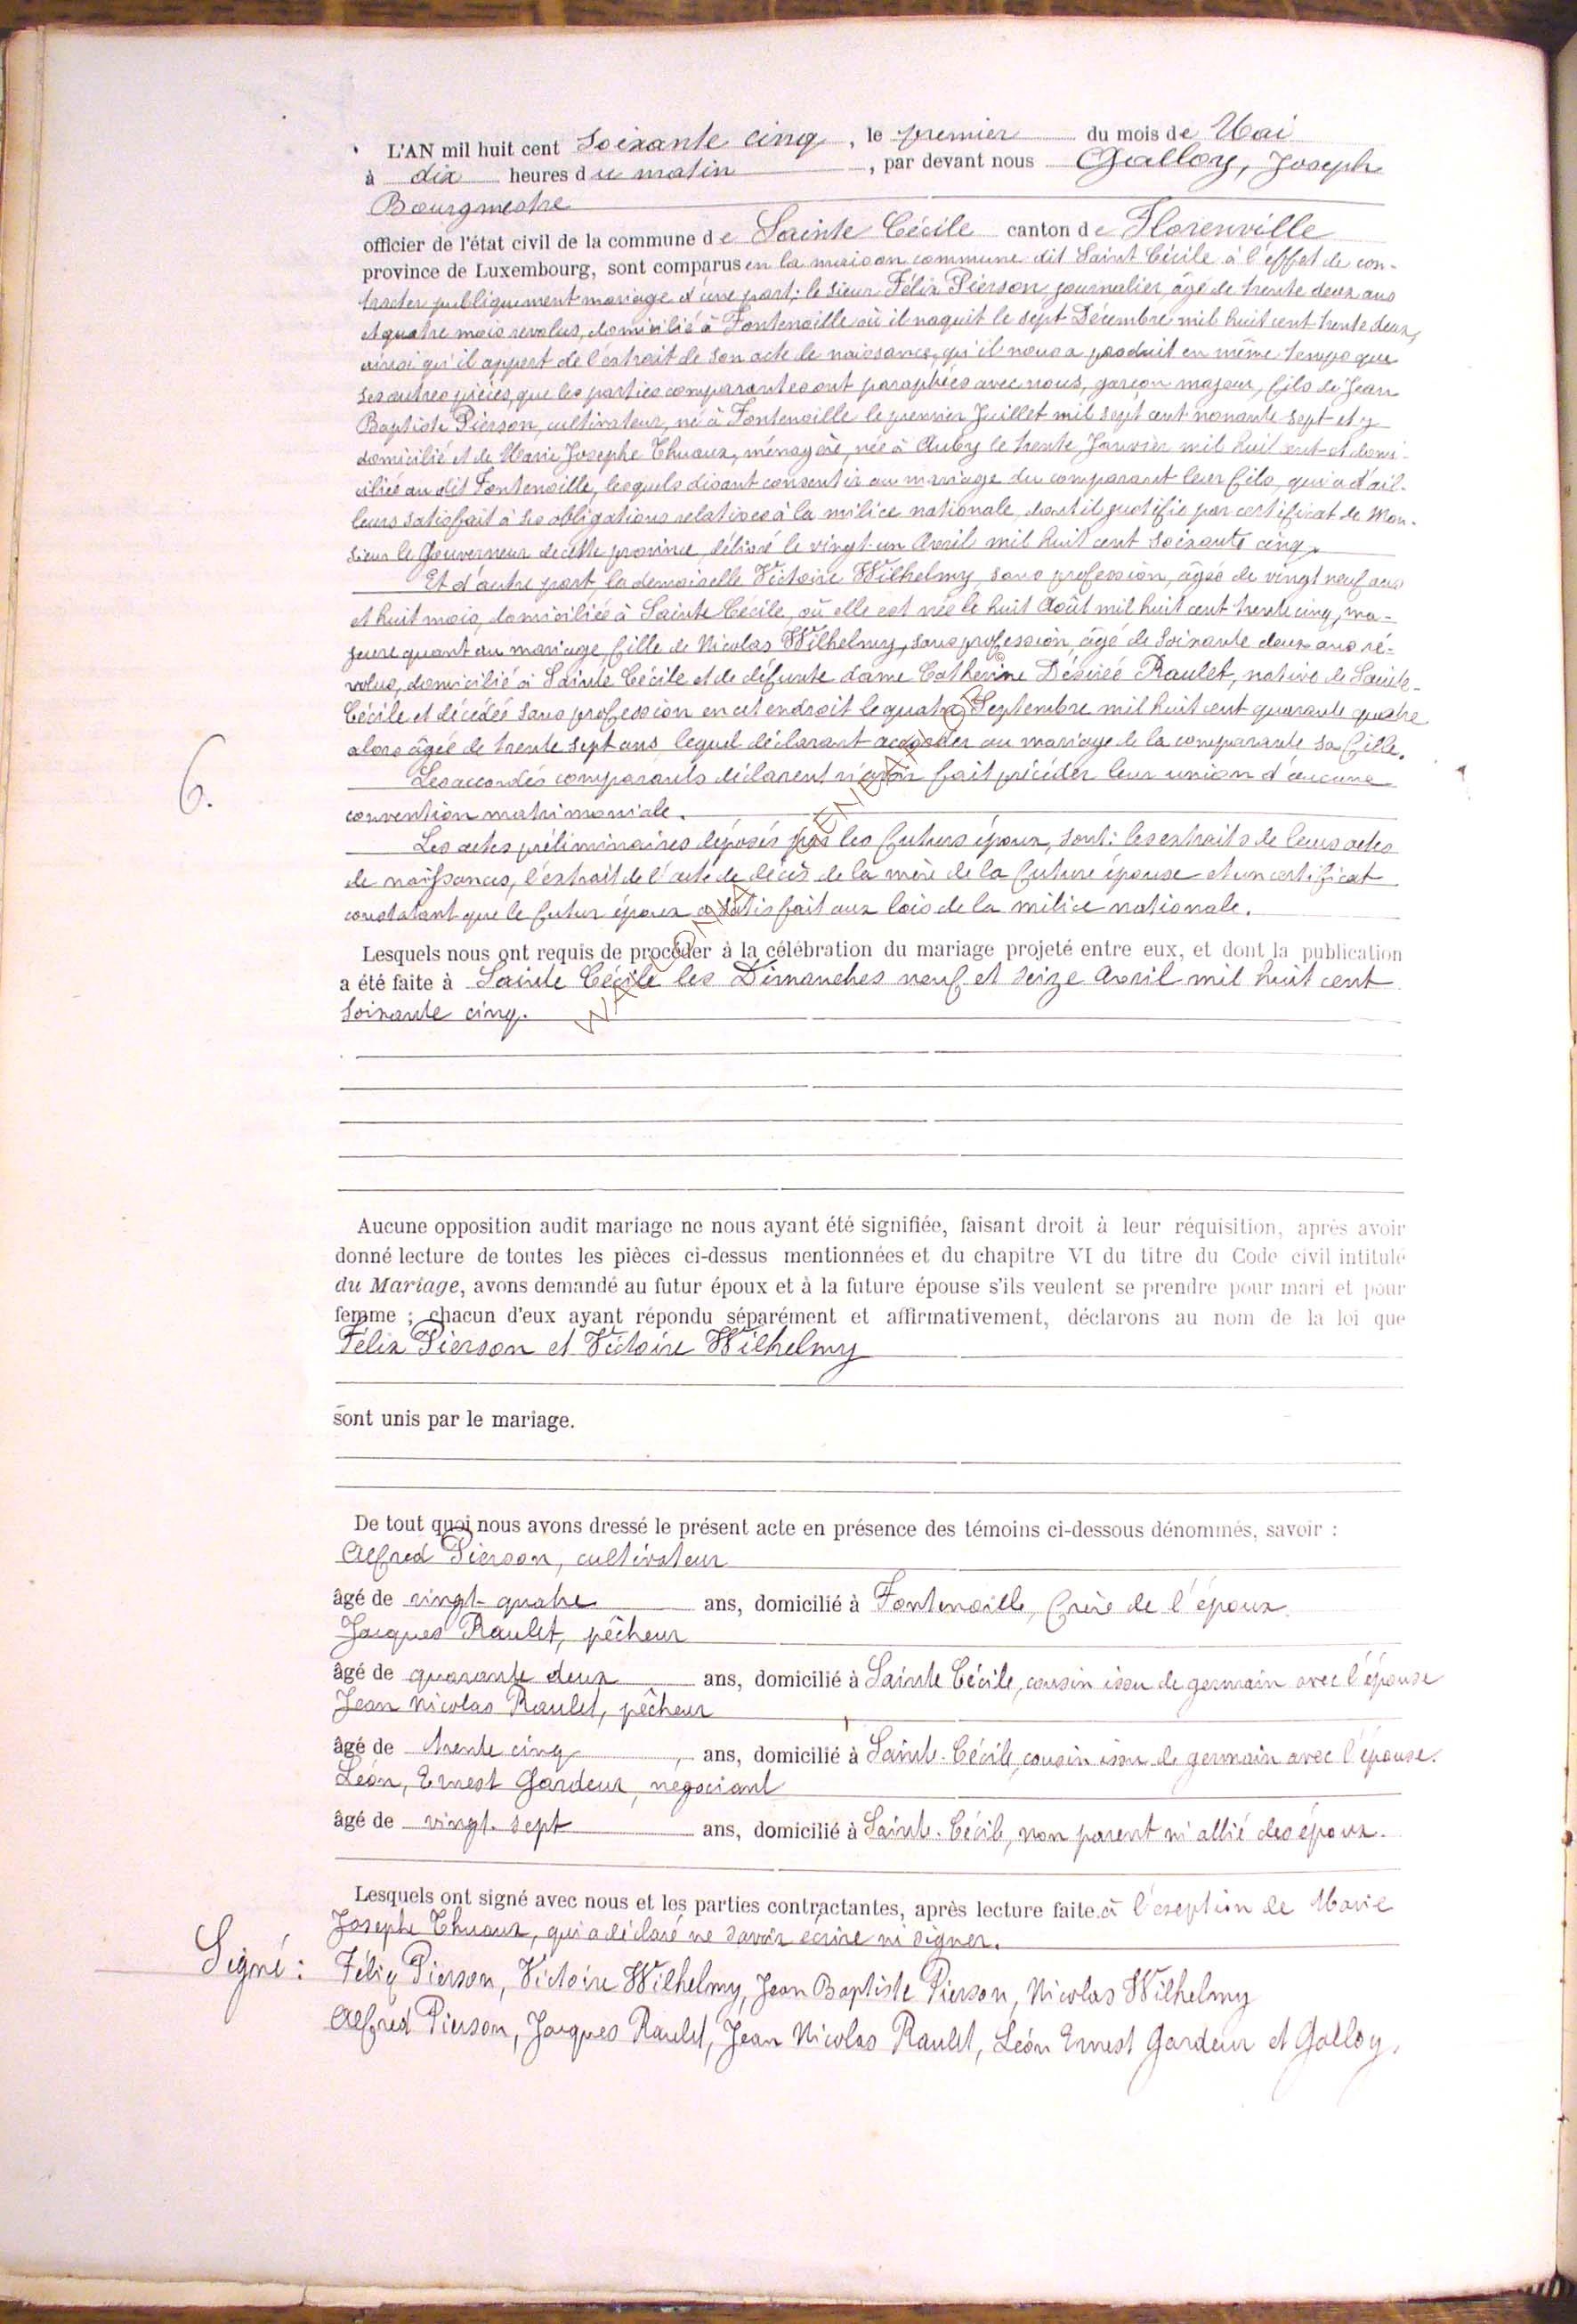 L'AN mil huit cent Soixante cinq, le premier du mois de Mai
à dix heures du matin, par devant nous Galloy, Joseph
Bourgmestre
officier de l'état civil de la commune de Sainte Cécile canton de Florenville
province de Luxembourg, sont comparus en la maison commune dit Saint Cécile à l'effet de con-
tracter publiquement mariage d'une part; le sieur Félix Pierson journalier, âgé de trente deux ans
et quatre mois revolus, domicilié à Fontenoille où il naquit le sept Décembre mil huit cent trente deux,
ainsi qu'il appert de l'extrait de son acte de naissance, qu'il nous a produit en même temps que
ses autres pièces, que les parties comparantes ont paraphées avec nous, garçon majeur, fils de Jean
Baptiste Pierson, cultivateur, né à Fontenoille le premier Juillet mil sept cent nonante sept et y
domicilié et de Marie Josephe Thuaux, ménagère, née à Auby le trente Janvier mil huit cent et domi-
ciliée au dit Fontenoille, lesquels disant consentir au mariage du comparant leur fils, qui a d'ail-
leurs satisfait à ses obligations relatives à la milice nationale, dont il justifie par certificat de Mon-
sieur le Gouverneur de cette province, délivré le vingt-un Avril mil huit cent soixante cinq.
Et d'autre part, la demoiselle Victoire Wilhelmy, sans profession, âgée de vingt neuf ans
et huit mois, domiciliée à Sainte Cécile, où elle est née le huit Août mil huit cent trente cinq, ma-
jeure quant au mariage, fille de Nicolas Wilhelmy, sans profession, âgé de soixante deux ans ré-
volus, domicilié à Sainte Cécile et de défunte dame Catherine Désirée Raulet, native de Sainte-
Cécile et décédée sans profession en cet endroit le quatre Septembre mil huit cent quarante quatre
alors âgée de trente sept ans lequel déclarant accéder au mariage de la comparante sa fille.
6.
Les accordés comparants déclarent n'avoir fait précéder leur union d'aucune
convention matrimoniale.
Les actes préliminaires déposés par les futurs époux, sont: les extraits de leurs actes
de naissances, l'extrait de l'acte de décès de la mère de la future épouse et un certificat
constatant que le futur époux a satisfait aux lois de la milice nationale.
Lesquels nous ont requis de procéder à la célébration du mariage projeté entre eux, et dont la publication
a été faite à Sainte Cécile les Dimanches neuf et seize Avril mil huit cent
soixante cinq.
Aucune opposition audit mariage ne nous ayant été signifiée, faisant droit à leur réquisition, après avoir
donné lecture de toutes les pièces ci-dessus mentionnées et du chapitre VI du titre du Code civil intitulé
du Mariage, avons demandé au futur époux et à la future épouse s'ils veulent se prendre pour mari et pour
femme ; chacun d'eux ayant répondu séparément et affirmativement, déclarons au nom de la loi que
Félix Pierson et Victoire Wilhelmy
sont unis par le mariage.
De tout quoi nous avons dressé le présent acte en présence des témoins ci-dessous dénommés, savoir :
Alfred Pierson, cultivateur
âgé de vingt-quatre ans, domicilié à Fontenoille, frère de l'époux.
Jacques Raulet, pêcheur
âgé de quarante deux ans, domicilié à Sainte Cécile, cousin issu de germain avec l'épouse
Jean Nicolas Raulet, pêcheur
âgé de trente cinq ans, domicilié à Sainte-Cécile, cousin issu de germain avec l'épouse.
Léon, Ernest Gardeur, négociant
âgé de vingt-sept ans, domicilié à Sainte-Cécile, non parent ni allié des époux.
Lesquels ont signé avec nous et les parties contractantes, après lecture faite à l'exeption de Marie
Josephe Thuaux, qui a déclaré ne savoir écrire ni signer.
Signé : Félix Pierson, Victoire Wilhelmy, Jean Baptiste Pierson, Nicolas Wilhelmy
Alfred Pierson, Jacques Raulet, Jean Nicolas Raulet, Léon Ernest Gardeur et Galloy.